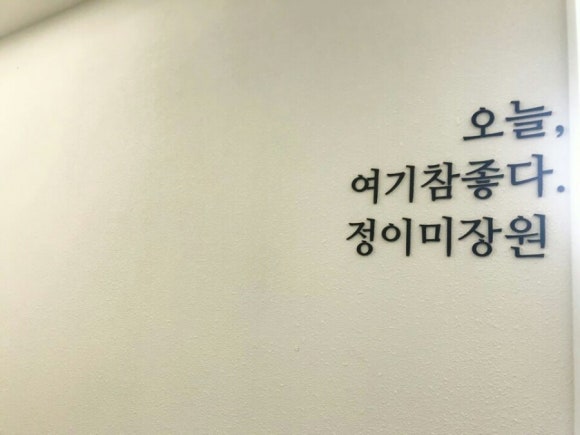 오늘,
여기참좋다.
정이미장원